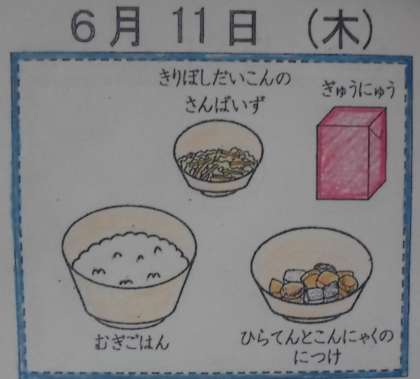 6月 11日 (木)
きりぼしだいこんの
さんばいず
ぎゅうにゅう
むぎごはん
ひらてんとこんにゃくの
につけ